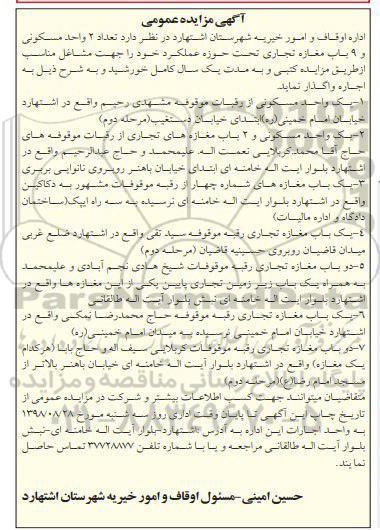 آگهی مزایده عمومی
اداره اوقاف و امور خیریه شهرستان اشتهارد در نظر دارد تعداد ۲ واحد مسکونی
و ۹ باب مغازه تجاری تحت حوزه عملکرد خود را جهت مشاغل مناسب
ازطریق مزایده کتبی و به مدت یک سال کامل خورشید و به شرح ذیل به
اجاره واگذار نماید.
۱-یک واحد مسکونی از رقبات موقوفه مشهدی رحیم واقع در اشتهارد
خیابان امام خمینی(ره)ابتدای خیابان دستغیب(مرحله دوم)
۲-یک واحد مسکونی و ۲ باب مغازه های تجاری از رقبات موقوفه های
حاج آقا محمد،کربلایی نعمت اله، علیمحمد و حاج عبدالرحیم واقع در
اشتهارد بلوار آیت اله خامنه ای ابتدای خیابان باهنر روبروی نانوایی بربری
۳-یک باب مغازه های شماره چهار از رقبه موقوفات مشهور به دکاکین
واقع در اشتهارد بلوار آیت اله خامنه ای نرسیده به سه راه ایپک(ساختمان
دادگاه و اداره مالیات)
۴-یک باب مغازه تجاری رقبه موقوفه سید تقی واقع در اشتهارد ضلع غربی
میدان قاضیان روبروی حسینیه قاضیان (مرحله دوم)
۵-دو باب مغازه تجاری رقبه موقوفات شیخ هادی نجم آبادی و علیمحمد
به همراه یک باب زیر زمین تجاری پایین یکی از این مغازه ها واقع در
اشتهارد بلوار آیت اله خامنه ای نبش بلوار آیت اله طالقانی
۶-یک باب مغازه تجاری رقبه موقوفه حاج محمدرضا نمکی واقع در
اشتهارد خیابان امام خمینی نرسیده به میدان امام خمینی(ره)
۷-دو باب مغازه تجاری رقبه موقوفات کربلایی سیف اله و حاج بابا (هرکدام
یک مغازه) واقع در اشتهارد بلوار آیت اله خامنه ای خیابان باهنر بالاتر از
مسجد امام رضا(ع)(مرحله دوم)
متقاضیان میتوانند جهت کسب اطلاعات بیشتر و شرکت در مزایده عمومی از
تاریخ چاپ این آگهی تا پایان وقت اداری روز سه شنبه مورخ ۱۳۹۸/۰۸/۲۸
به واحد اجارات این اداره به آدرس اشتهارد-بلوار آیت اله خامنه ای-نبش
بلوار آیت اله طالقانی مراجعه و یا با شماره تلفن ۳۷۷۲۸۸۷۷ تماس حاصل
نمایند.
حسین امینی -مسئول اوقاف و امور خیریه شهرستان اشتهارد